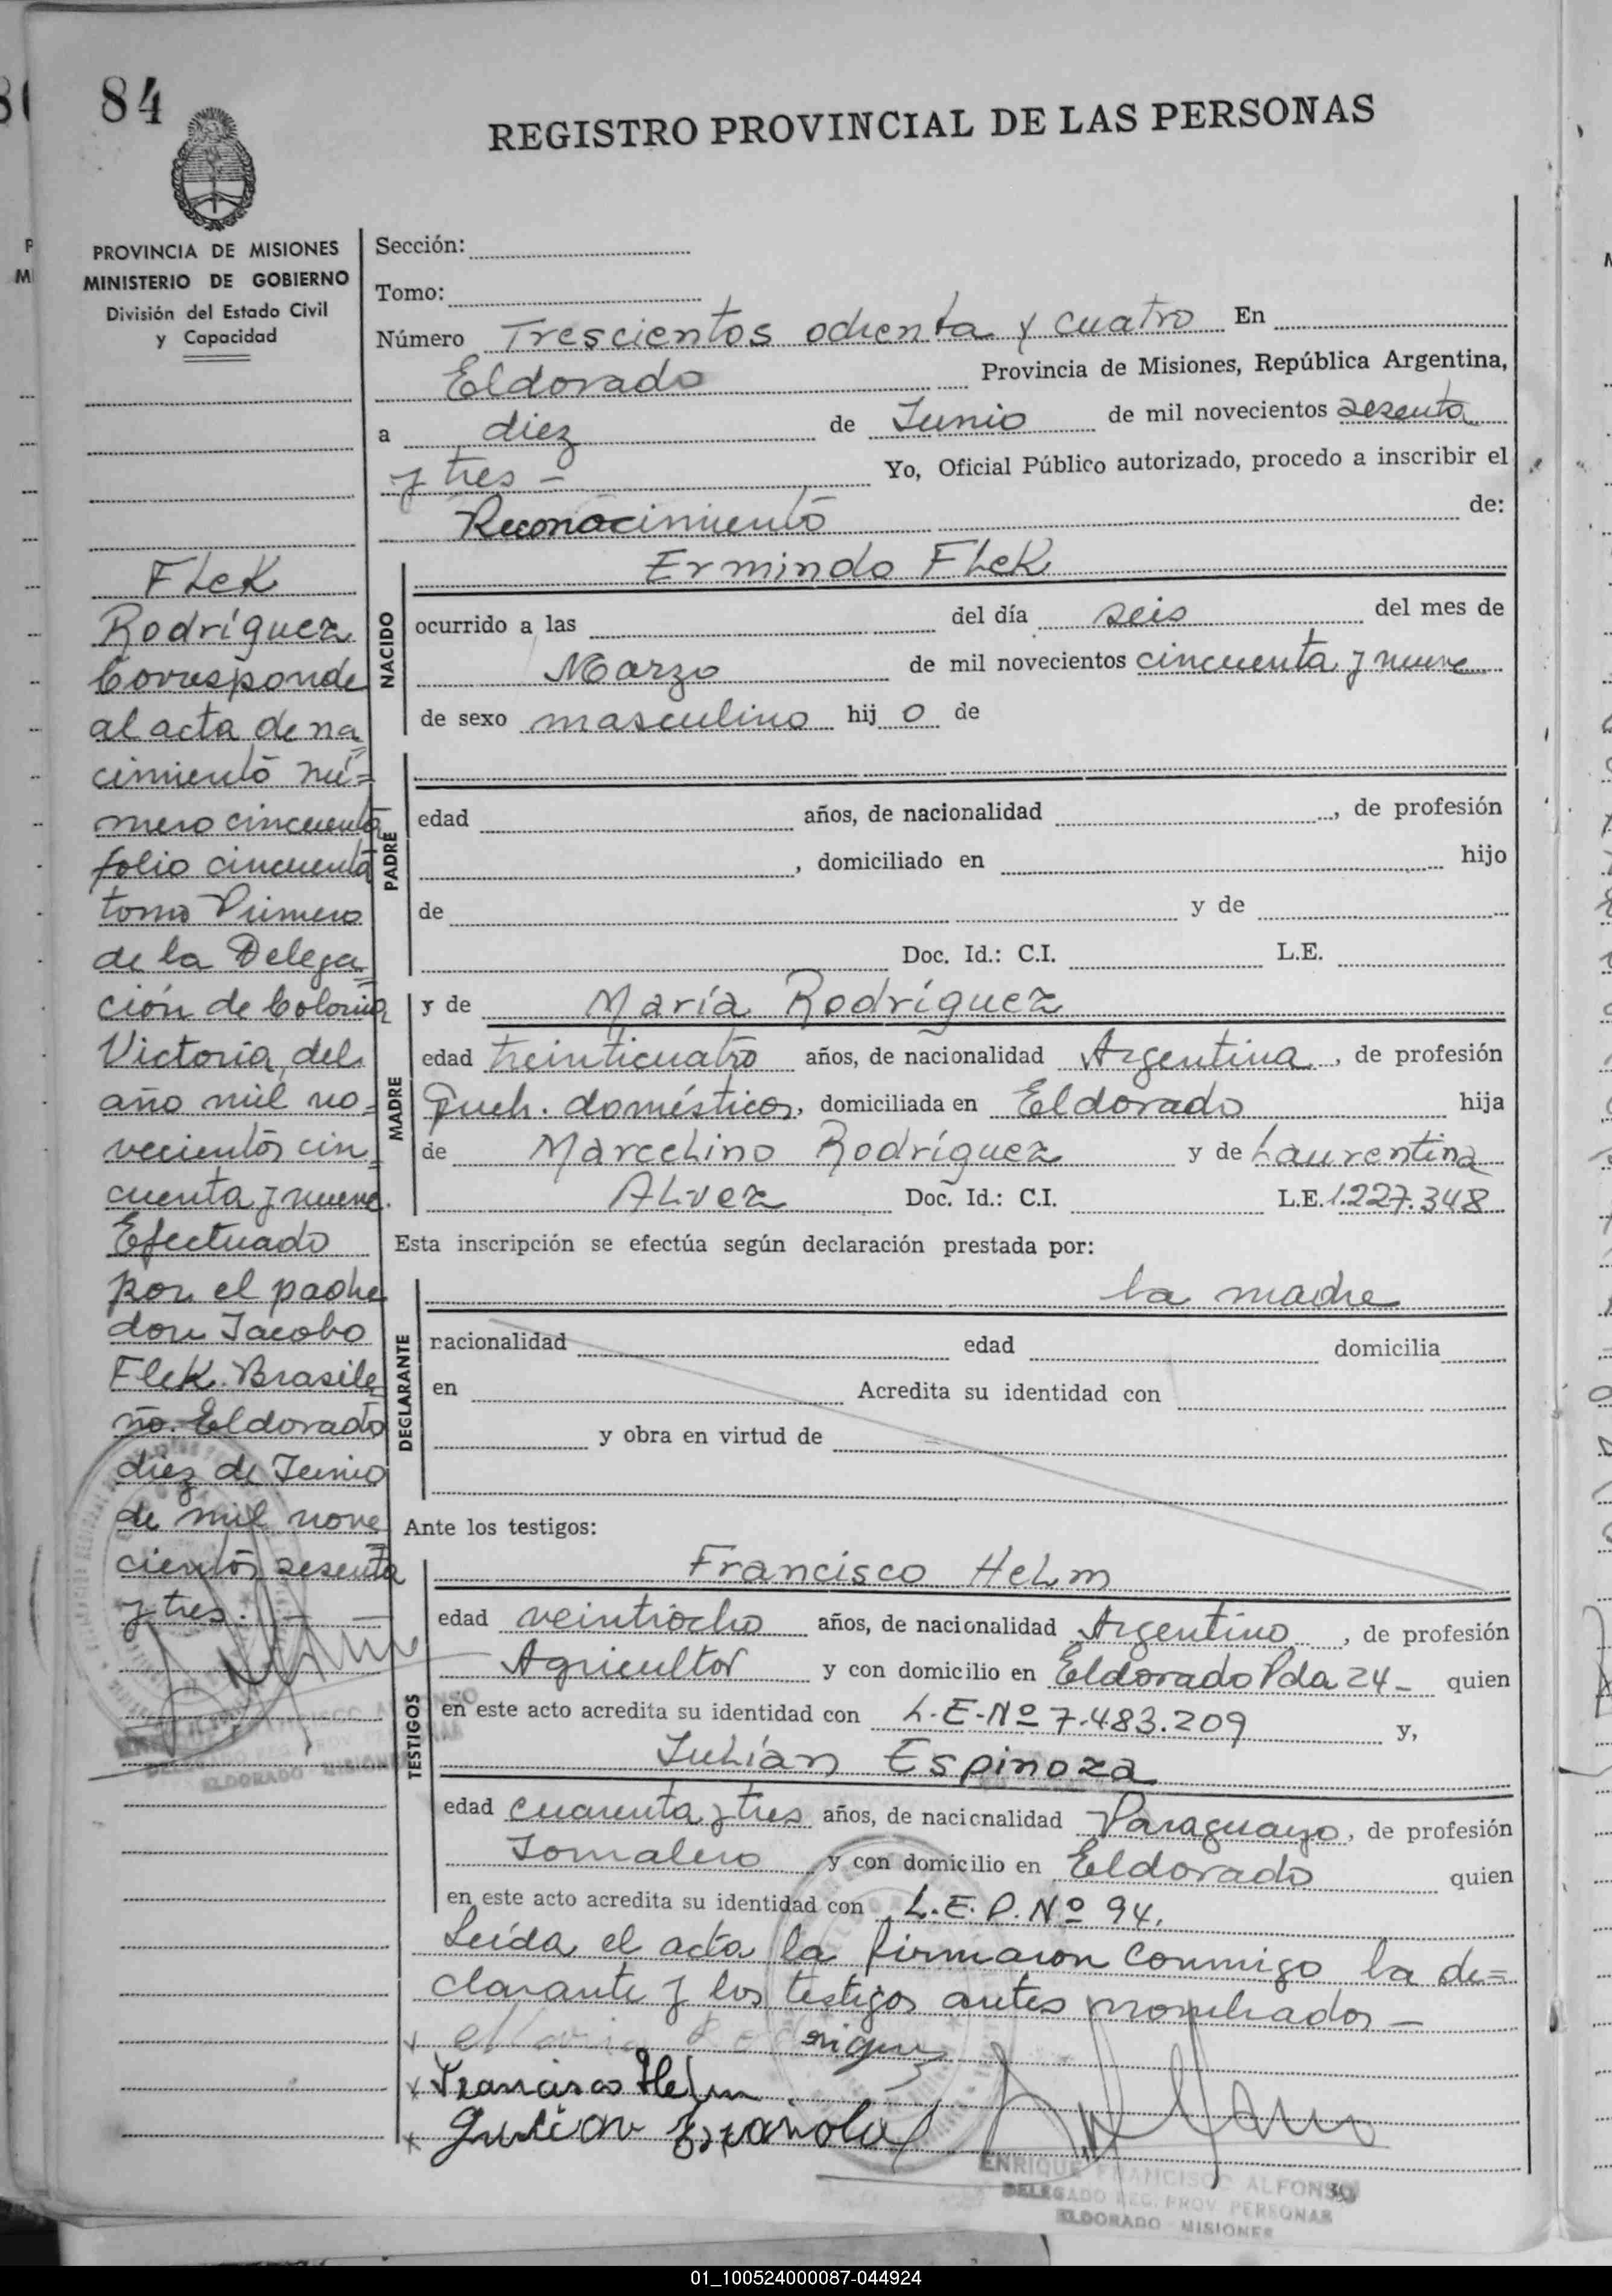 84
REGISTRO PROVINCIAL DE LAS PERSONAS
PROVINCIA DE MISIONES
MINISTERIO DE GOBIERNO
División del Estado Civil
y Capacidad
FLeK
Rodríguez
Corresponde
al acta de na=
cimiento nú=
mero cincuenta
folio cincuenta
tomo Primero
de la Delega=
ción de Colonia
Victoria, del
año mil no=
vecientos cin=
cuenta y nueve.
Efectuado
por el padre
don Jacobo
FleK. Brasile=
ño. Eldorado
diez de Junio
de mil nove=
cientos sesenta
y tres. —
Sección:
Tomo:
Número Trescientos ochenta y cuatro En
Eldorado Provincia de Misiones, República Argentina,
a diez de Junio de mil novecientos sesenta
y tres — Yo, Oficial Público autorizado, procedo a inscribir el
Reconocimiento de:
NACIDO
Ermindo FLeK
ocurrido a las del día seis del mes de
Marzo de mil novecientos cincuenta y nueve
de sexo masculino hij o de
PADRE
edad años, de nacionalidad , de profesión
, domiciliado en hijo
de y de
Doc. Id.: C.I. L.E.
MADRE
y de María Rodríguez
edad treinticuatro años, de nacionalidad Argentina, de profesión
Queh. domésticos, domiciliada en Eldorado hija
de MarceLino Rodríguez y de Laurentina
ALvez Doc. Id.: C.I. L.E. 1.227.348
Esta inscripción se efectúa según declaración prestada por:
DECLARANTE
la madre
nacionalidad edad domicilia
en Acredita su identidad con
y obra en virtud de
Ante los testigos:
TESTIGOS
Francisco HeLm
edad veintiocho años, de nacionalidad Argentino, de profesión
Agricultor y con domicilio en Eldorado Pda 24 — quien
en este acto acredita su identidad con L.E-Nº 7.483.209 y,
JuLián Espinoza
edad cuarenta y tres años, de nacionalidad Paraguayo, de profesión
Jornalero y con domicilio en Eldorado quien
en este acto acredita su identidad con L.E.P. Nº 94.
Leída el acta la firmaron conmigo la de=
clarante y los testigos antes nombrados —
x Maria Rodrigue
x Francisco Helm
x Julian
ENRIQUE FRANCISCO ALFONSO
DELEGADO REG. PROV. PERSONAS
ELDORADO MISIONES
01_100524000087-044924